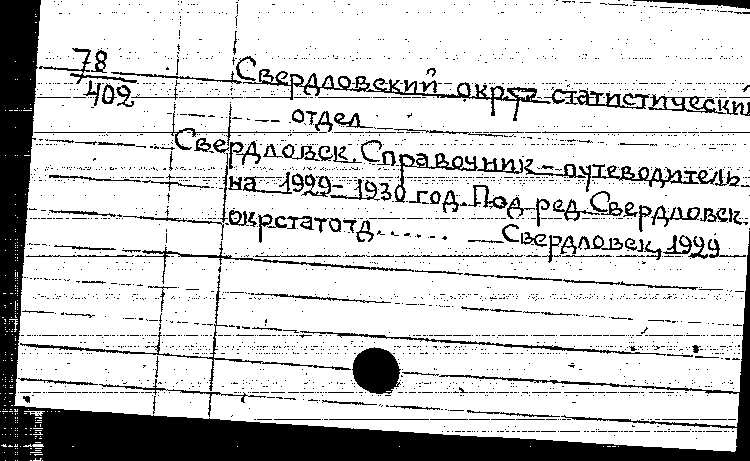 78
402
Свердловский округ статистический
отдел
Свердловск. Справочник-путеводитель
на 1929-1930 год. Под ред. Свердловск.
окрстатотд...... Свердловск, 1929